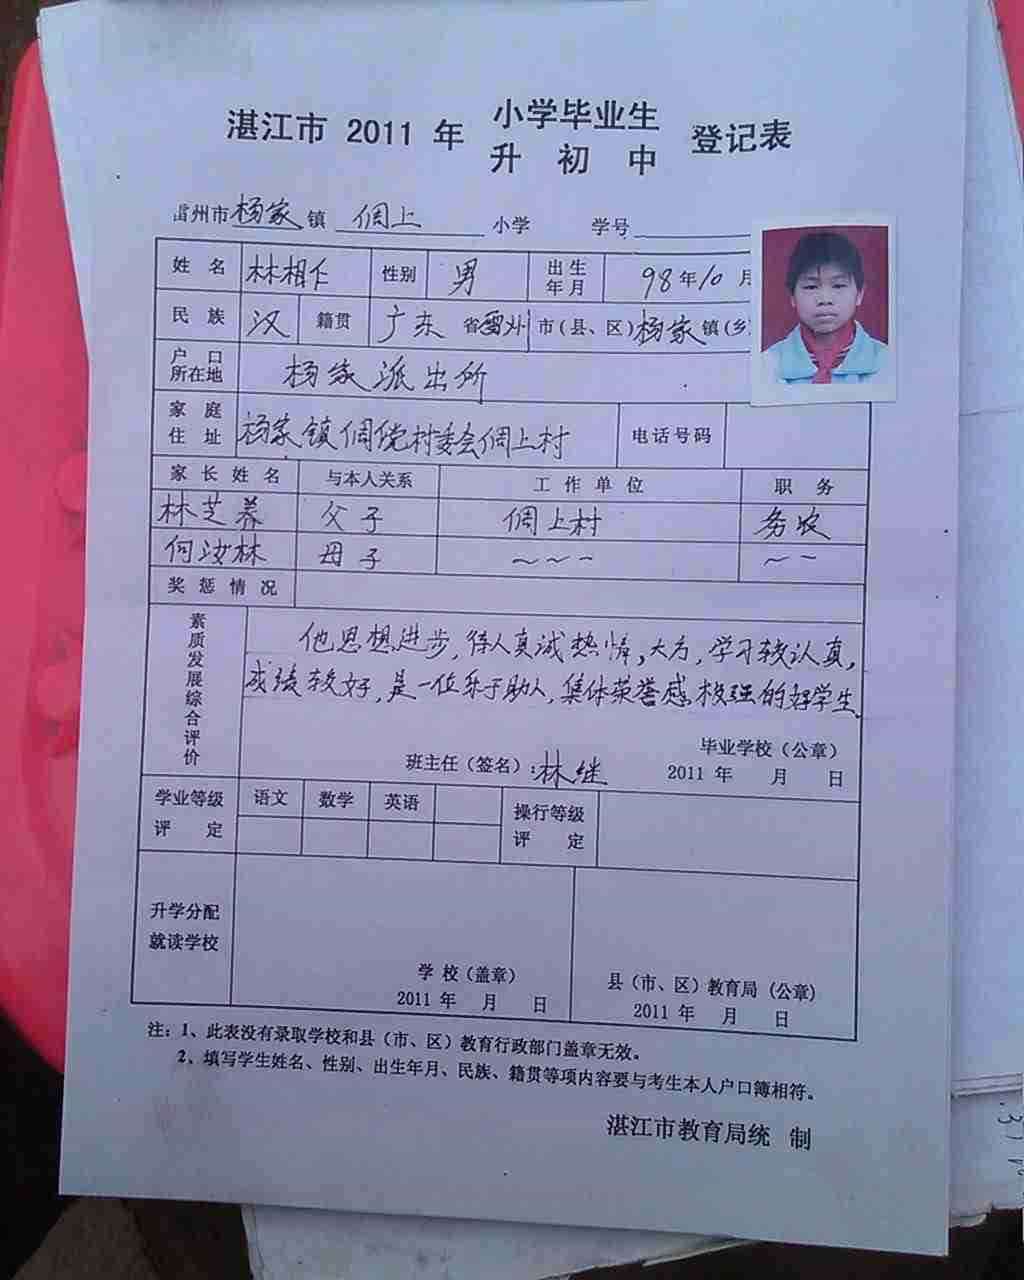 湛江市 2011 年 小学毕业生 登记表
升 初 中
雷州市杨家镇 倜上 小学 学号
姓 名 林相仁 性别 男 出生年月 98年10月
民 族 汉 籍贯 广东省雷州市(县、区)杨家镇(乡
户 口所在地 杨家派出所
家 庭住 址 杨家镇倜傥村委会倜上村 电话号码
家 长 姓 名 与本人关系 工 作 单 位 职 务
林芝养 父子 倜上村 务农
何汝林 母子 ~~~ ~~
奖 惩 情 况
素质发展综合评价
他思想进步,待人真诚热情,大方,学习较认真,
成绩较好,是一位乐于助人,集体荣誉感极强的好学生.
毕业学校（公章）
班主任（签名）:林继
2011 年 月 日
学业等级评 定 语文 数学 英语 操行等级评 定
升学分配
就读学校
学 校（盖章）
2011 年 月 日
县（市、区）教育局（公章）
2011 年 月 日
注：1、此表没有录取学校和县（市、区）教育行政部门盖章无效。
2、填写学生姓名、性别、出生年月、民族、籍贯等项内容要与考生本人户口簿相符。
湛江市教育局统 制